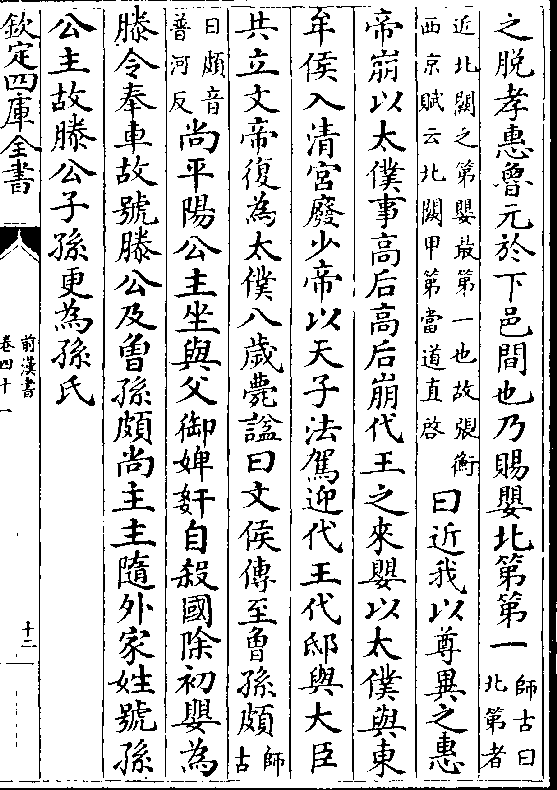 之脱孝惠魯元於下邑間也乃賜嬰北第第一師古曰北第者
近北闕之第嬰最第一也故張衡西京賦云北闕甲第當道直啓曰近我以尊異之惠
帝崩以太僕事高后高后崩代王之來嬰以太僕與東
牟侯入清宮廢少帝以天子法駕迎代王代邸與大臣
共立文帝復為太僕八歲薨諡曰文侯傳至曾孫頗師古
曰頗音普河反尚平陽公主坐與父御婢姧自殺國除初嬰為
滕令奉車故號滕公及曾孫頗尚主主隨外家姓號孫
公主故滕公子孫更為孫氏
欽定四庫全書
前漢書
卷四十一
十二